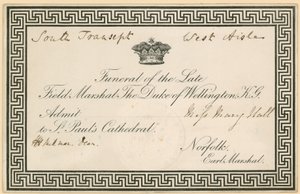 South Transept West Aisle
Funeral of the Late
Field Marshal The Duke of Wellington, K.G.
Admit
to St. Paul's Cathedral.
Milman Dean
Norfolk,
Earl Marshal.